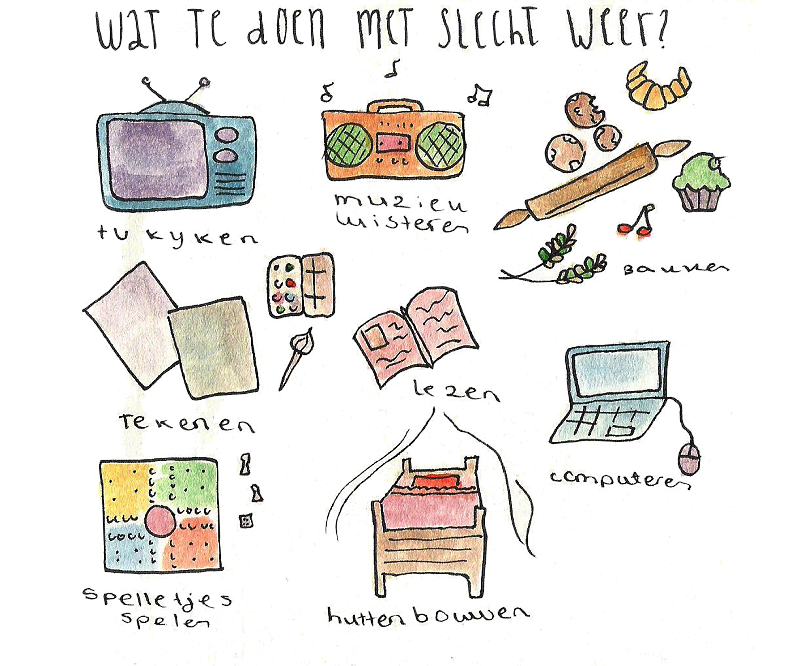 wat te doen met slecht weer?
tv kyken
muziek
luisteren
bakken
tekenen
lezen
computeren
spelletjes
spelen
hutten bouwen